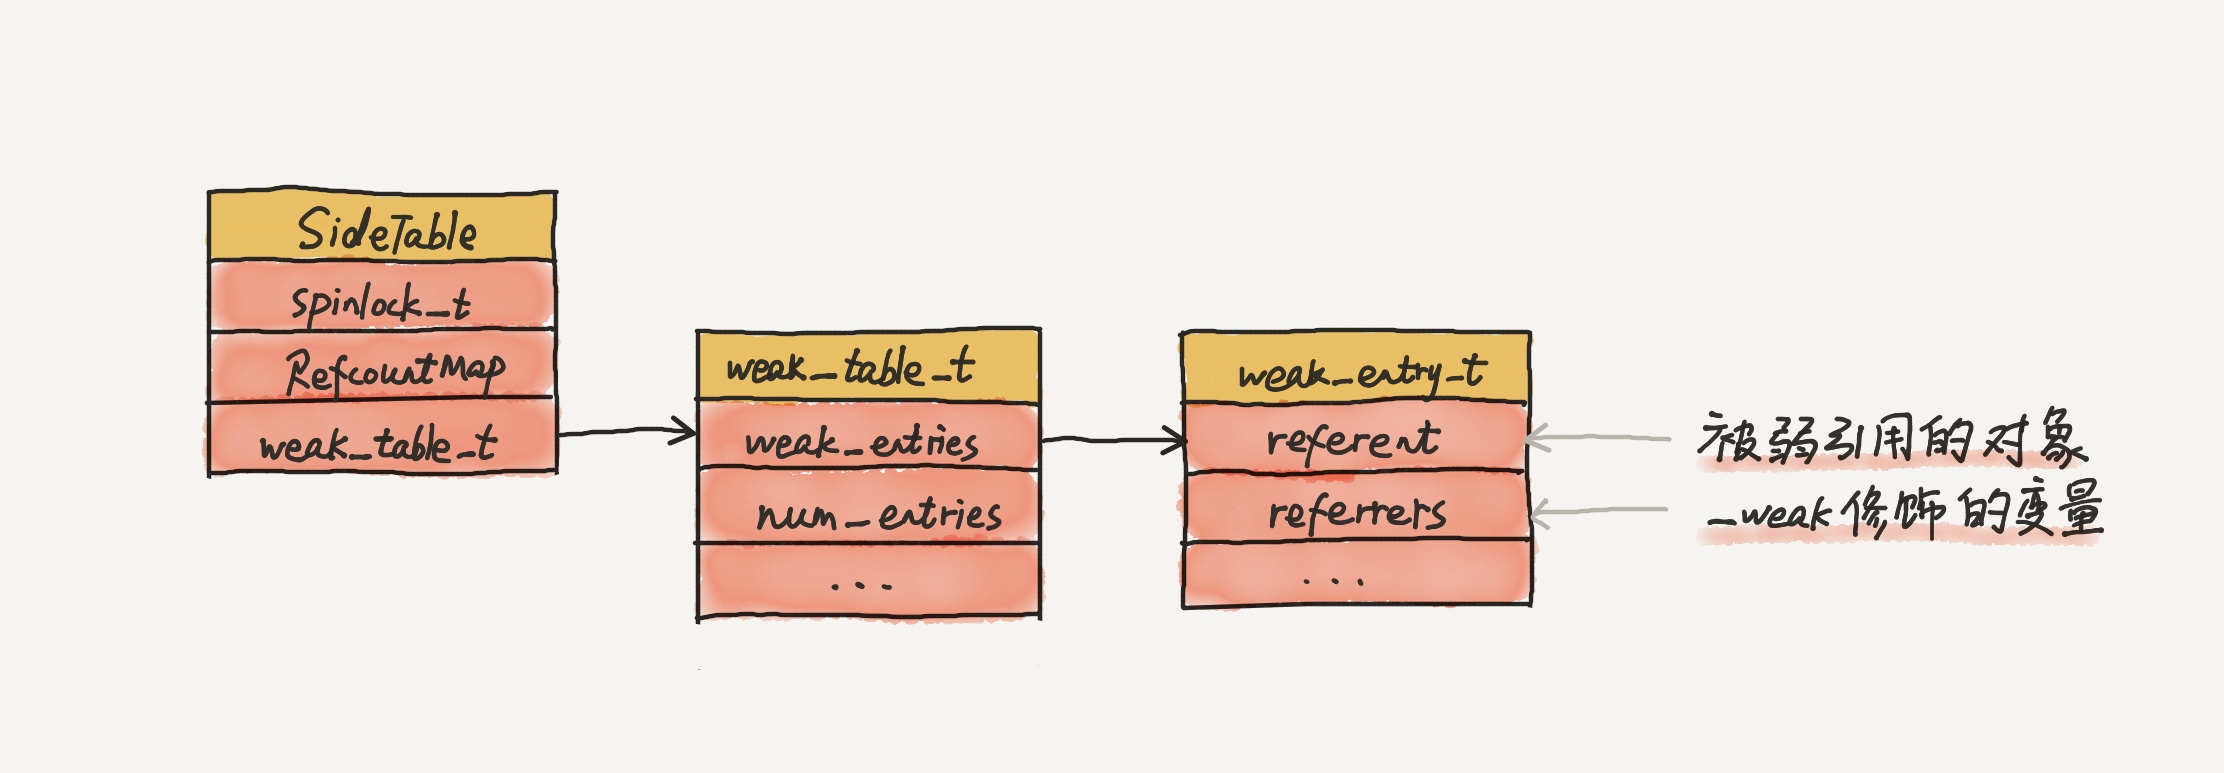 SideTable
spinlock_t
RefcountMap
weak_table_t
weak_table_t
weak_entries
num_entries
...
weak_entry_t
referent
referrers
...
被弱引用的对象
_weak修饰的变量